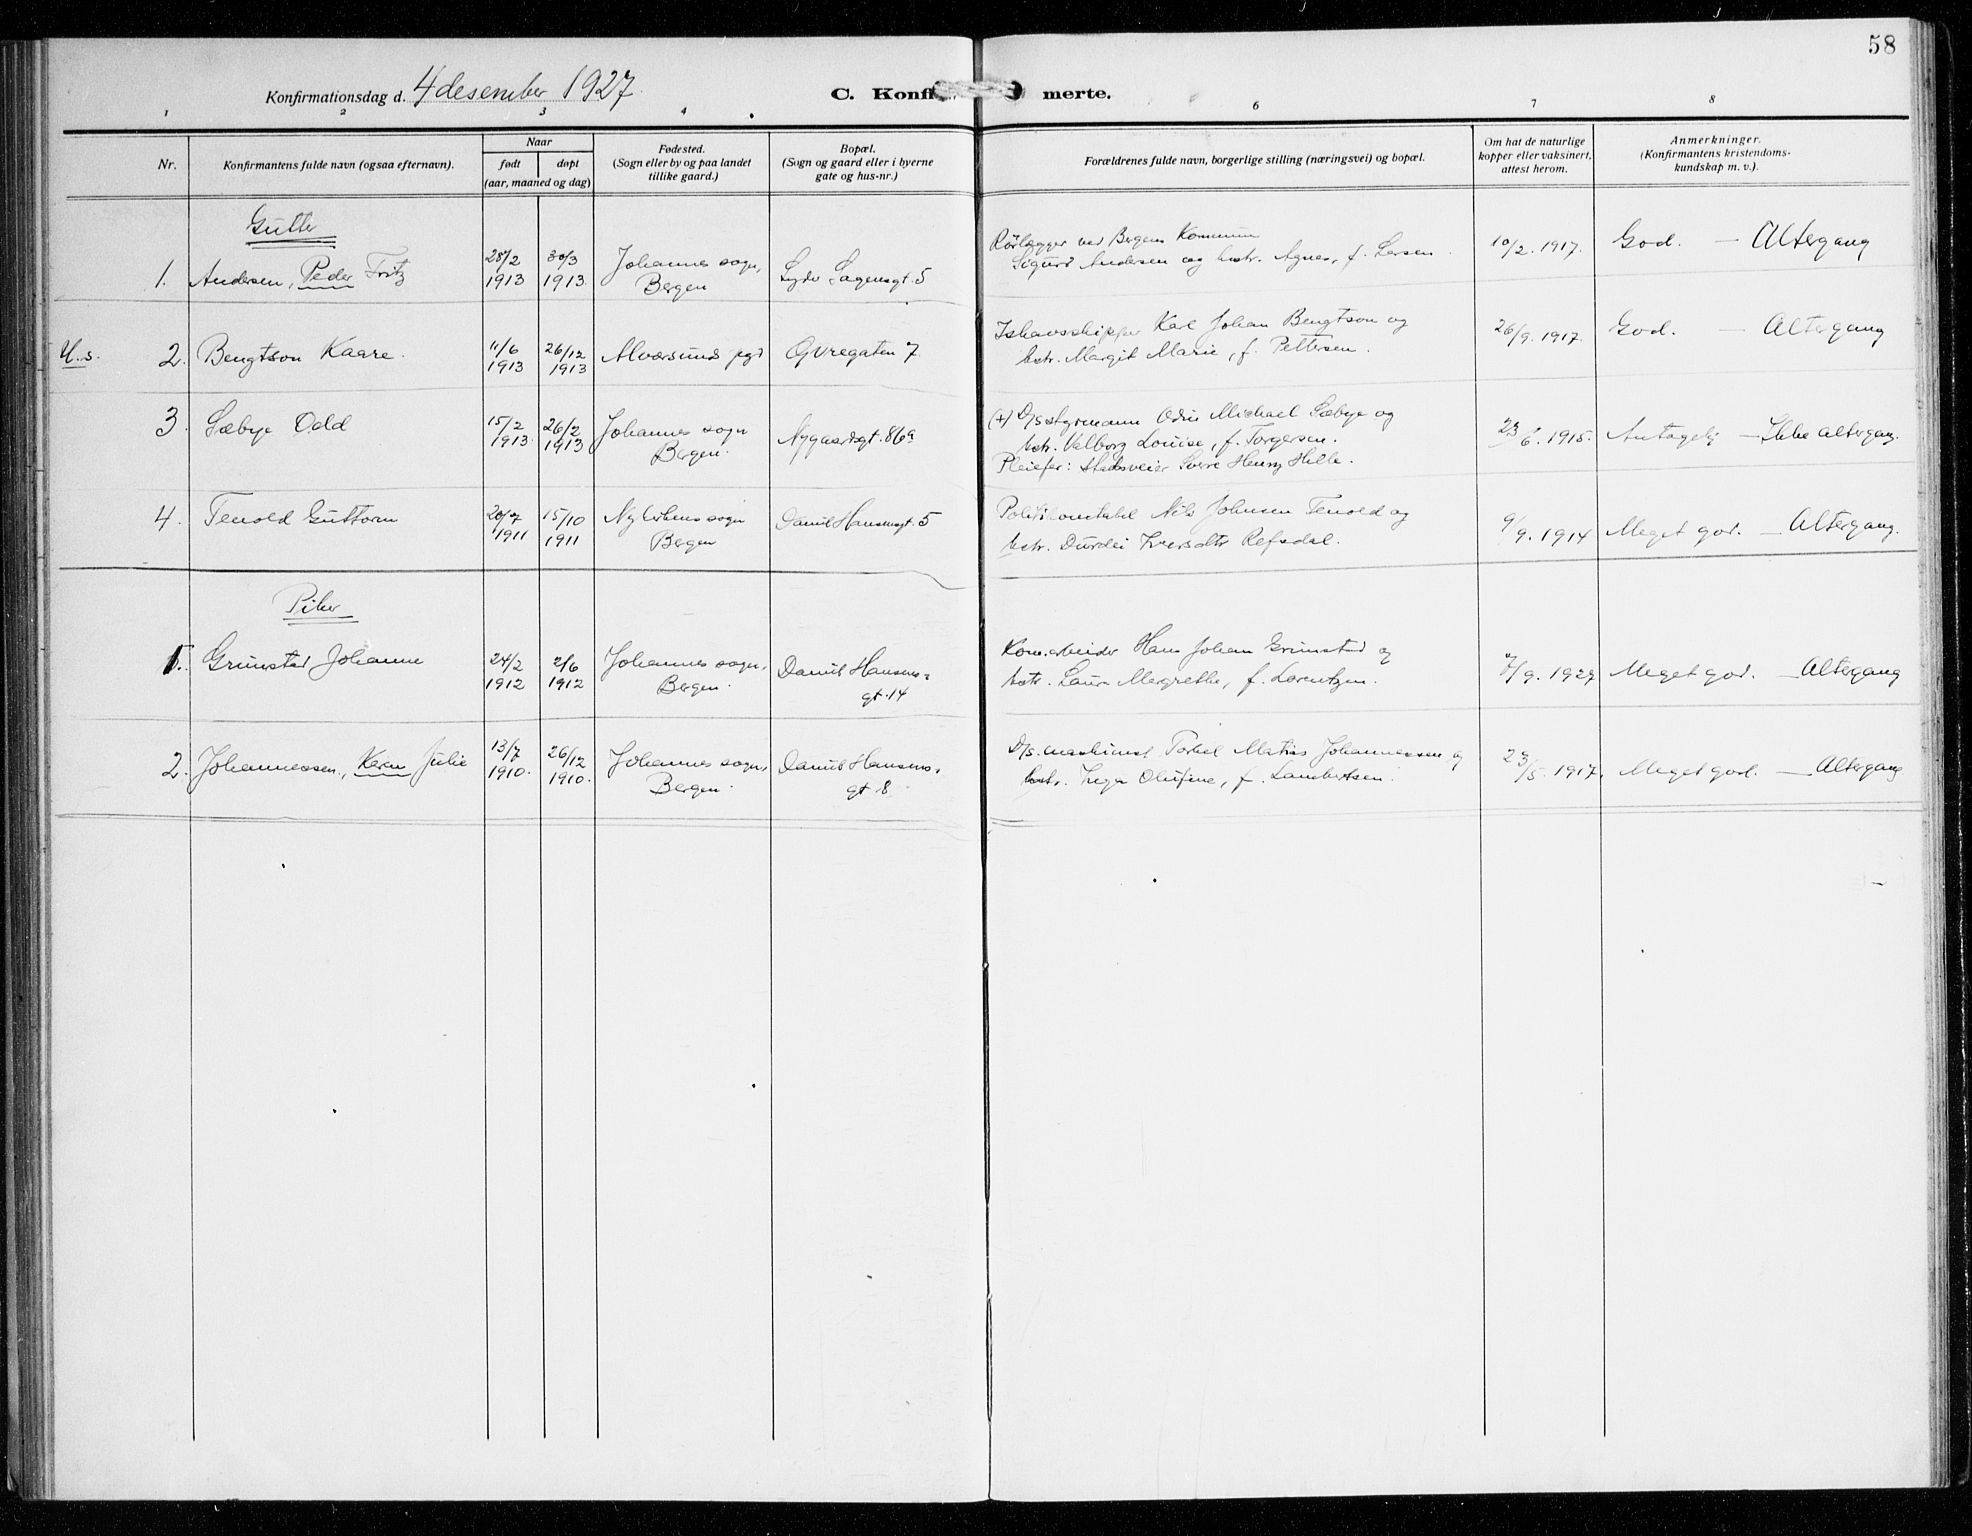 58
Konfirmationsdag d. 4 desember 1927.
C. Konfir merte.
1 2 3 4 6 7 8
Nr.
Konfirmantens fulde navn (ogsaa efternavn).
Naar
født døpt
(aar, maaned og dag)
Fødested.
(Sogn eller by og paa landet
tillike gaard.)
Bopæl.
(Sogn og gaard eller i byerne
gate og hus-nr.)
Forældrenes fulde navn, borgerlige stilling (næringsvei) og bopæl.
Om hat de naturlige
kopper eller vaksinert,
attest herom.
Anmerkninger.
(Konfirmantens kristendoms-
kundskap m. v.).
Gutter
1. Andersen, Peder Fritz
28/2 1913
30/3 1913.
Johannes sogn,
Bergen
Lyder Sagensgt. 5
Rørlægger ved Bergens Kommune
Sigurd Andersen og hstr. Agnes, f. Larsen.
10/2. 1917.
God. — Altergang
U.s. 2. Bengtson Kaare.
11/6 1913
26/12 1913
Alversund pgd
Øvregaten 7.
Ishavsskipper Karl Johan Bengtson og
hstr. Margit Marie, f. Pettersen.
26/9. 1917.
God. — Altergang
3. Sæbye Odd
15/2 1913.
26/2 1913
Johannes sogn
Bergen.
Nygaardsgt. 86a
(+) D/s styrmann Odin Michael Sæbye og
hstr. Valborg Louise, f. Torgersen.
Pleiefar: Sverre Henry Hille.
23/6. 1915.
Antagelig — Ikke altergang.
4. Tenold Guttorm
20/7 1911
15/10 1911
Nykirkens sogn
Bergen
Daniel Hansensgt. 5
Politikonstabel Nils Johnsen Tenold og
hstr. Durdei Iversdtr Refsdal.
9/9. 1914
Meget god. — Altergang.
Piker
1. Grimstad Johanne
24/2 1912
2/6 1912
Johannes sogn,
Bergen.
Daniel Hansens-
gt. 14
Kom. arbeider Hans Johan Grimstad og
hstr. Laura Margrethe, f. Lorentzen.
7/9. 1927
Meget god. — Altergang
2. Johannessen, Karen Julie
13/7 1910.
26/12 1910.
Johannes sogn,
Bergen.
Daniel Hansens-
gt 8
D/s. maskinist Torkel Matias Johannessen og
hstr. Inga Olufine, f. Lambertsen.
23/5. 1917.
Meget god. — Altergang